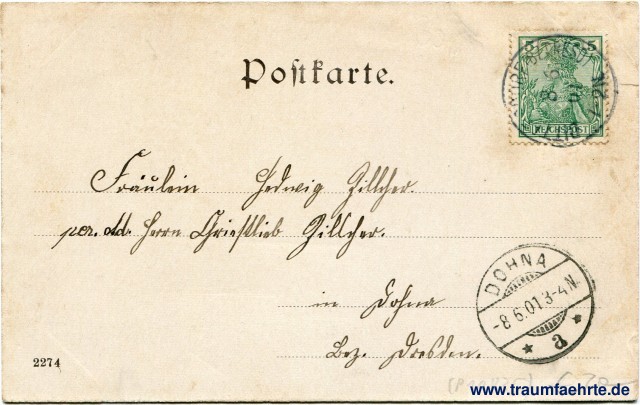 Postkarte.
5 5
REICHSPOST
Fräulein Hedwig Zillher.
per. Ad. Herrn Christlieb Zillher.
in Dohna
Bez. Dresden.
DOHNA
-8.6.01.3-4N.
* a *
2274
www.traumfaehrte.de